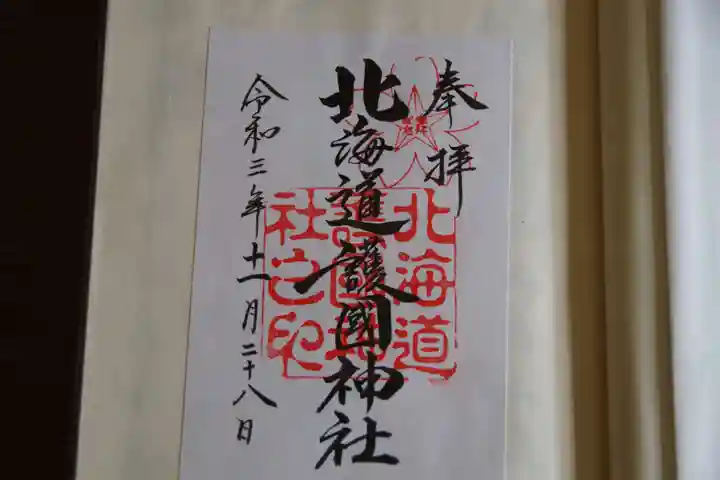 奉拝
北海道護國神社
令和三年十一月二十八日
北海道
護國神
社之印